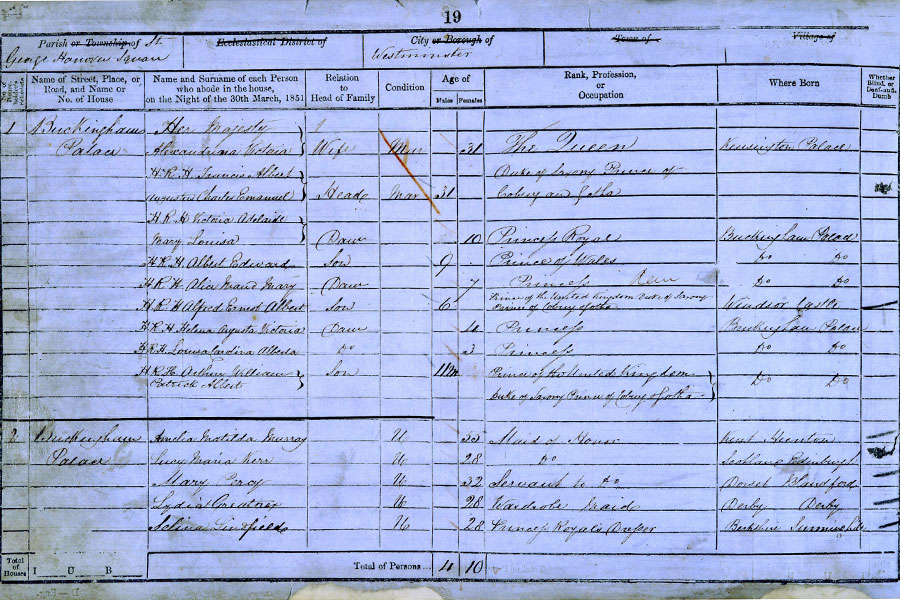 19
Parish or Township of St. George Hanover Square
Ecclesiastical District of
City or Borough of Westminster
Town of
Village of
Name of Street, Place, or Road, and Name or No. of House
Name and Surname of each Person who abode in the house, on the Night of the 30th March, 1851
Relation to Head of Family
Condition
Age of
Males Females
Rank, Profession, or Occupation
Where Born
Whether Blind, or Deaf-and-Dumb
1 Buckingham Her Majesty
Palace Alexandrina Victoria Wife Mar 31 The Queen Kensington Palace
H R H Francis Albert Duke of Saxony Prince of
Augustus Charles Emanuel Head Mar 31 Coburg and Gotha
H R H Victoria Adelaide
Mary Louisa Daur 10 Princess Royal Buckingham Palace
H R H Albert Edward Son 9 Prince of Wales Do Do
H R H Alice Maud Mary Daur 7 Princess Do Do
H R H Alfred Ernest Albert Son 6 Prince of the United Kingdom Duke of Saxony Prince of Coburg Gotha Windsor Castle
H R H Helena Augusta Victoria Daur 4 Princess Buckingham Palace
H R H Louisa Carolina Alberta Do 3 Princess Do Do
H R H Arthur William Son 11m Prince of the United Kingdom Do Do
Patrick Albert Duke of Saxony Prince of Coburg Gotha
2 Buckingham Amelia Matilda Murray U Maid of Honor Kent Hunton
Palace Lucy Maria Kerr U 28 Do Scotland Edinburgh
Mary Percy U 32 Servant to Do Dorset Blandford
Lydia Greatorex U 28 Wardrobe Maid Derby Derby
Selina U 28 Princess Royal's Dresser Berkshire
Total of Houses I U B Total of Persons 4 10